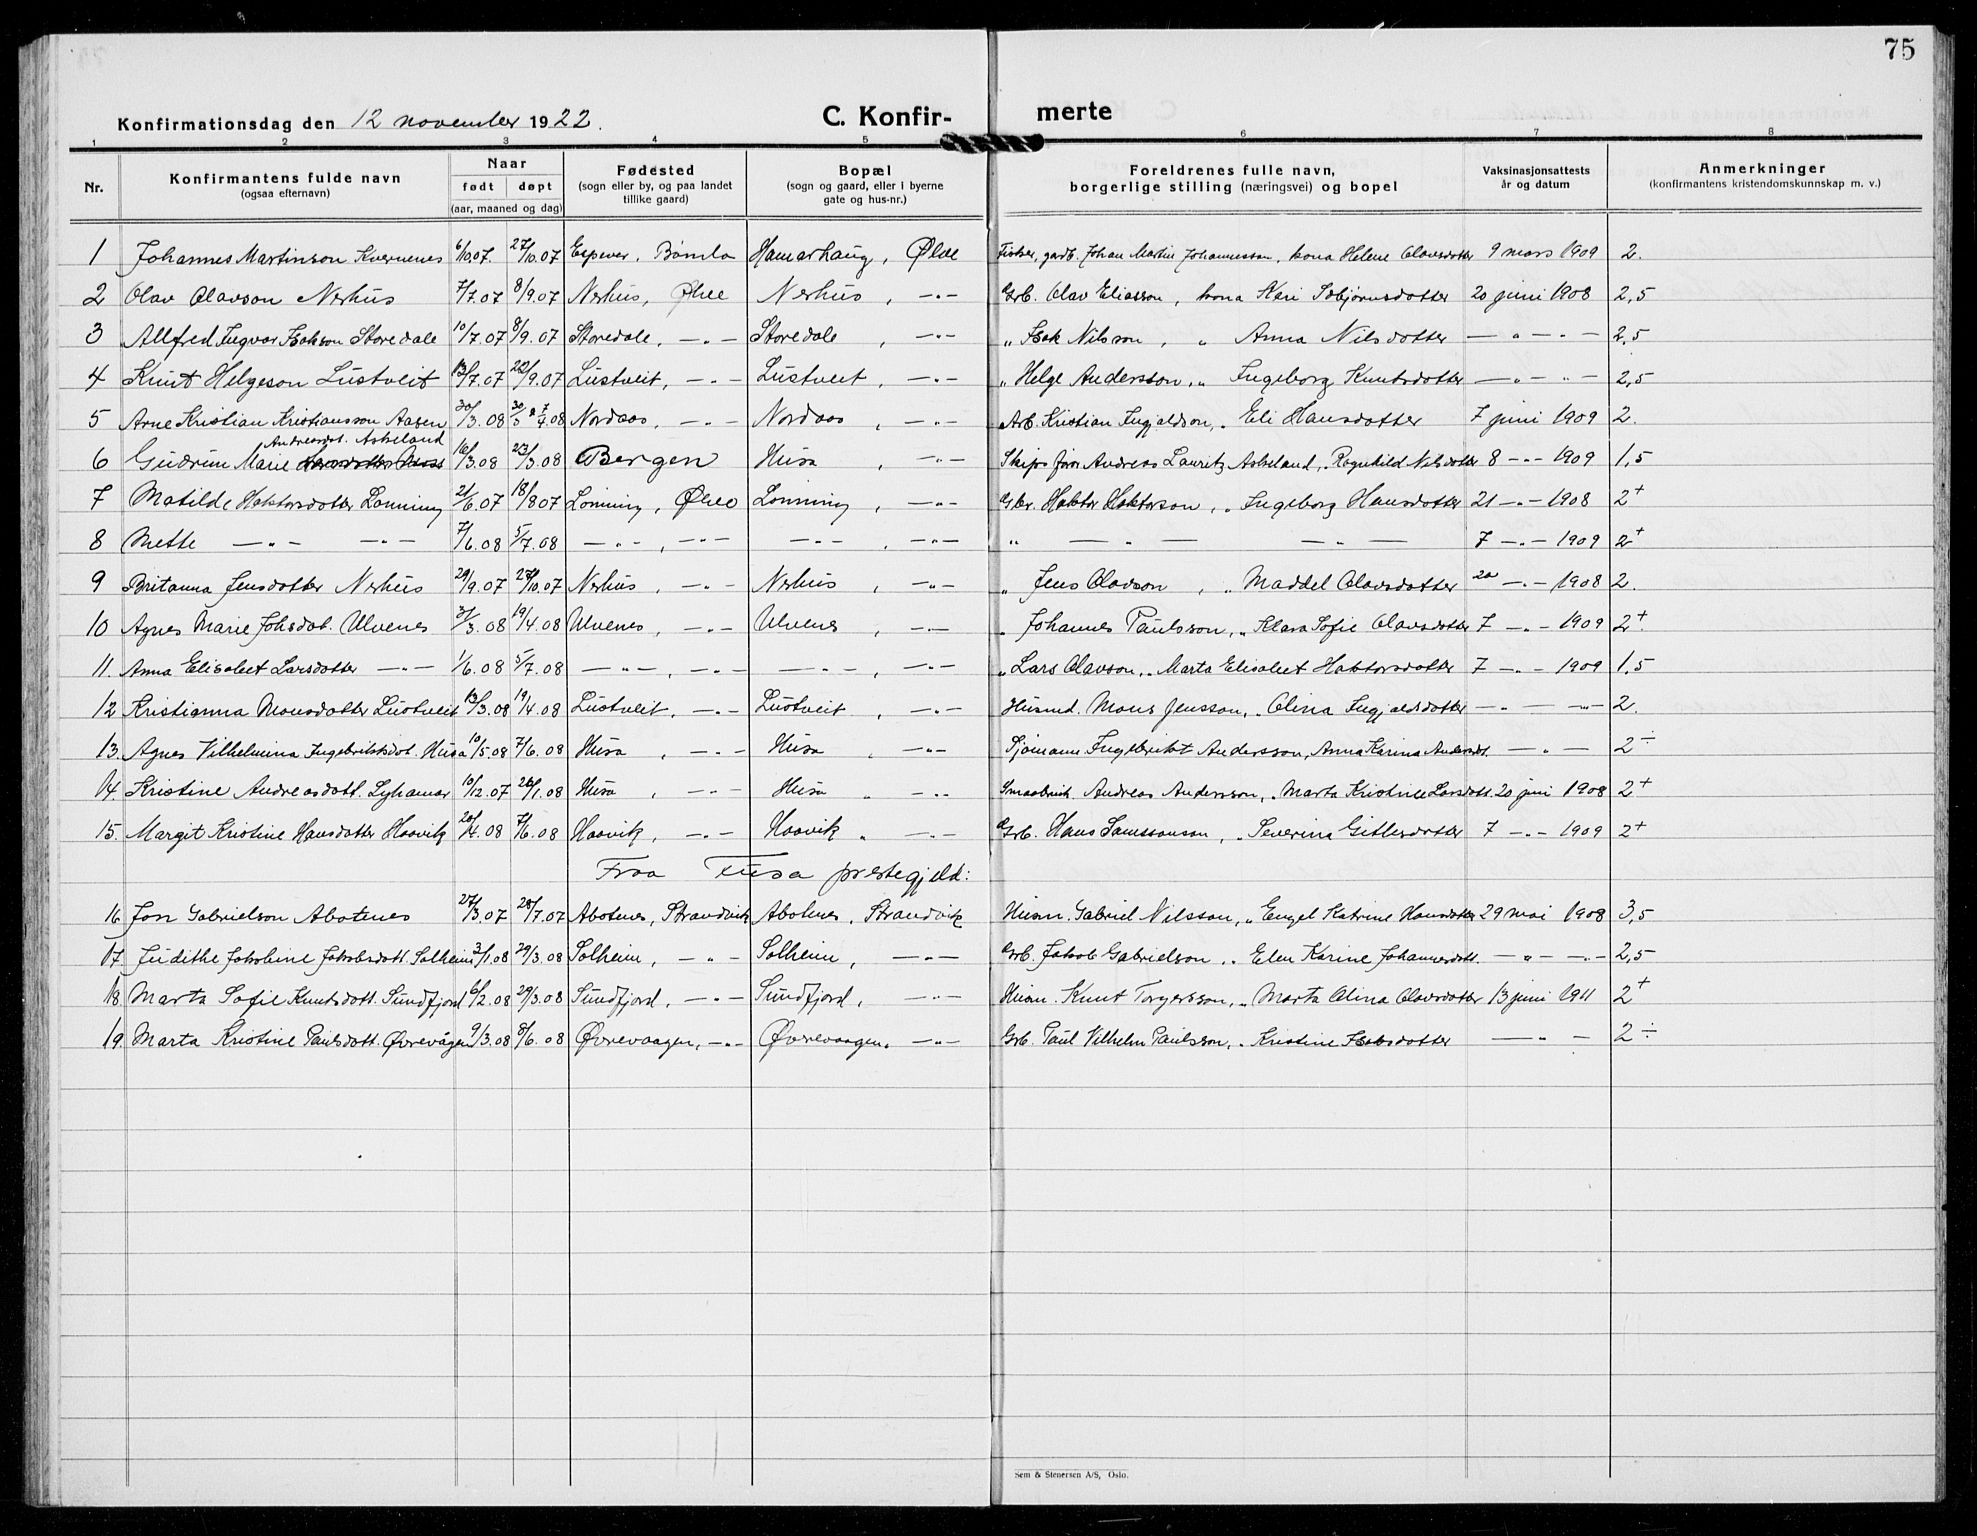 75
Konfirmationsdag den 12 november 1922.
C. Konfir- merte
1 2 3 4 5 6 7 8
Nr. Konfirmantens fulde navn (ogsaa efternavn) Naar født døpt (aar, maaned og dag) Fødested (sogn eller by, og paa landet tillike gaard) Bopæl (sogn og gaard, eller i byerne gate og hus-nr.) Foreldrenes fulle navn, borgerlige stilling (næringsvei) og bopel Vaksinasjonsattests år og datum Anmerkninger (konfirmantens kristendomskunnskap m. v.)
1 Johannes Martinson Kvernenes 6/10.07. 27/10.07 Espever, Bømlo Hamarhaug, Ølve Fisker, gardb. Johan Martin Johannesson, kona Helene Olavsdotter 9 mars 1909 2.
2 Olav Olavson Nerhus 7/7.07 8/9.07 Nerhus, Ølve Nerhus, -"- Grb. Olav Eliasson, kona Kari Asbjørnsdotter 20 juni 1908 2,5
3 Allfred Ingvar Isakson Storedale 10/7.07 8/9.07 Storedale, -"- Storedale, -"- " Isak Nilsson, " Anna Nilsdotter -"- - 2,5
4 Knut Helgeson Lustveit 13/7.07 22/9.07 Lustveit, -"- Lustveit, -"- " Helge Andersson, " Ingeborg Knutsdotter -"- "- 2,5
5 Arne Kristian Kristiansson Aasen 30/3.08 Nordaas, -"- Nordaas, -"- Arb. Kristian Ingjaldson, " Eli Hansdotter 7 juni 1909 2.
Andreasdt. Askeland
6 Gudrun Marie 16/3.08 23/3.08 Bergen Husa, -"- Skipsfører Andreas Lauritz Askeland, " Ragnhild Nilsdotter 8 -"- 1909 1,5
7 Matilde Haktorsdotter Lønning 21/6.07 18/8 07 Lønning, Ølve Lønning, -"- Gbr. Haktor Haktorson, " Ingeborg Hansdotter 21 -"- 1908 2+
8 Mette -"- -"- 7/6.08 5/7.08 -"-, -"- -"-, -"- " - " - -"- 7 -"- 1909 2+
9 Britanna Jensdotter Nerhus 29/9.07 27/10.07 Nerhus, -"- Nerhus, -"- " Jens Olavson, " Maddel Olavsdotter 20 -"- 1908 2.
10 Agnes Marie Johsdot. Ulvenes 31/3.08 19/4.08 Ulvenes, -"- Ulvenes, -"- " Johannes Paulsson, " Klara Sofie Olavsdotter 7 -"- 1909 2+.
11. Anna Elisabet Larsdotter -"- 1/6.08 5/7.08 -"-, -"- -"-, -"- " Lars Olavson, " Marta Elisabet Haktorsdotter 7 -"- 1909 1,5
12 Kristianna Monsdotter Lustveit 13/3.08 19/4.08 Lustveit, -"- Lustveit, -"- Husmd. Mons Jensson, " Olina Ingjaldsdotter -"- -"- 2.
13. Agnes Vilhelmina Ingebriktsdot. Husa 10/5.08 7/6.08 Husa, -"- Husa, -"- Sjømann Ingebrikt Andersson, Anna Karina Andersdt. -"- 2÷
14. Kristine Andreasdott. Lyhamar 10/12.07 26/1.08 Husa, -"- Husa, -"- Smaabruk. Andreas Andersson, " Marta Kristine Larsdott. 20 juni 1908 2+
15. Margit Kristine Hansdotter Haavik 20/4.08 7/6.08 Haavik, -"- Haavik, -"- Grb. Hans Samssonson, " Severina Gitlesdotter 7 -"- 1909 2+
Fraa Fusa prestegjeld:
16 Jon Gabrielson Abotnes 27/3.07 28/7.07 Abotnes, Strandvik Abotnes, Strandvik Husm. Gabriel Nilsson, " Engel Katrine Hansdotter 29 mai 1908 3,5
17 Judithe Jakobine Jakobsdott. Solheim 3/1.08 29/3.08 Solheim, -"- Solheim, -"- Grb. Jakob Gabrielson, " Elen Karine Johannesdott. -"- -"- 2,5
18 Marta Sofie Knutsdott. Sundfjord 6/2.08 29/3.08 Sundfjord, -"- Sundfjord, -"- Husm. Knut Torgersson, " Marta Olina Olavsdotter 13 juni 1911 2+
19. Marta Kristine Paulsdott. Øvrevågen 9/3.08 8/6.08 Øvrevaagen, -"- Øvrevaagen, -"- Grb. Paul Vilhelm Paulsson, " Kristine Isaksdotter -"- 2÷
Sem & Stenersen A/S, Oslo.